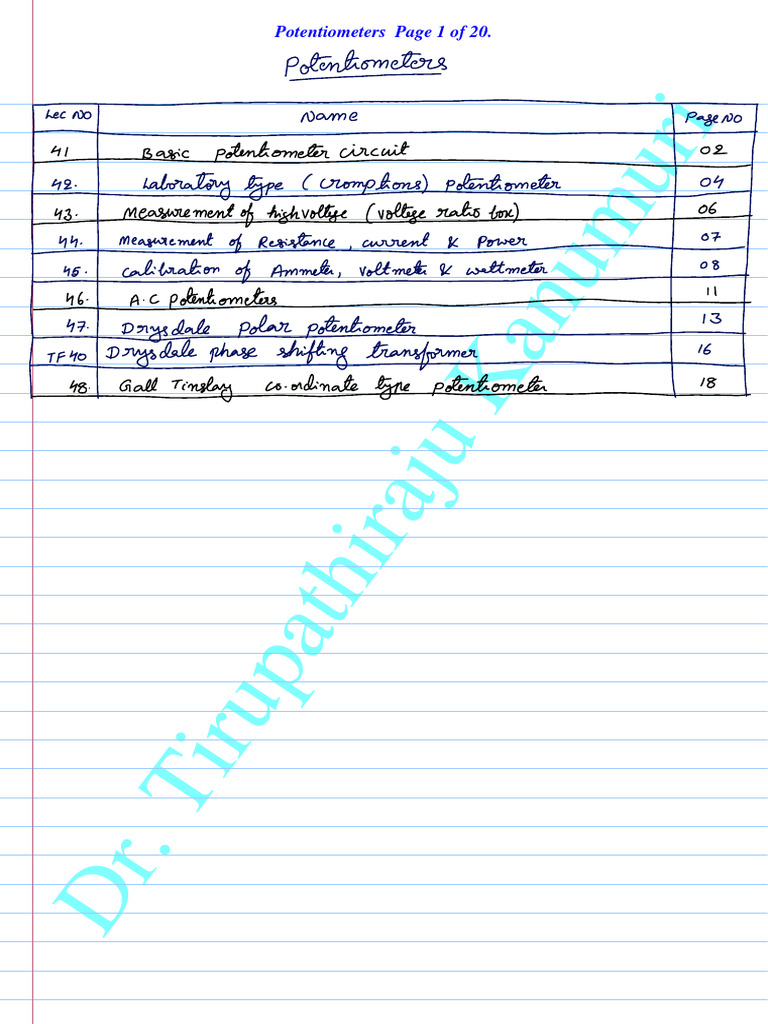 Potentiometers Page 1 of 20.
Potentiometers
Lec No Name Page No
41 Basic potentiometer circuit 02
42. Laboratory type (cromptions) potentiometer 04
43. Measurement of high voltage (voltage ratio box) 06
44. Measurement of Resistance, current & Power 07
45. calibration of Ammeter, voltmeter & wattmeter 08
46. A.C potentiometers 11
47. Drysdale polar potentiometer 13
TF 40 Drysdale phase shifting transformer 16
48. Gall Tinslay co.ordinate type potentiometer 18
Dr. Tirupathiraju Kanumuri